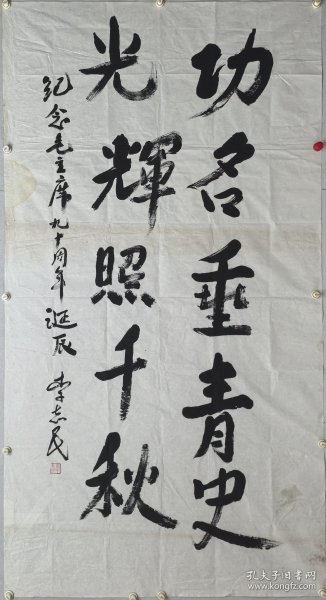 功名垂青史
光輝照千秋
纪念毛主席九十周年诞辰 李志民
孔夫子旧书网
www.kongfz.com